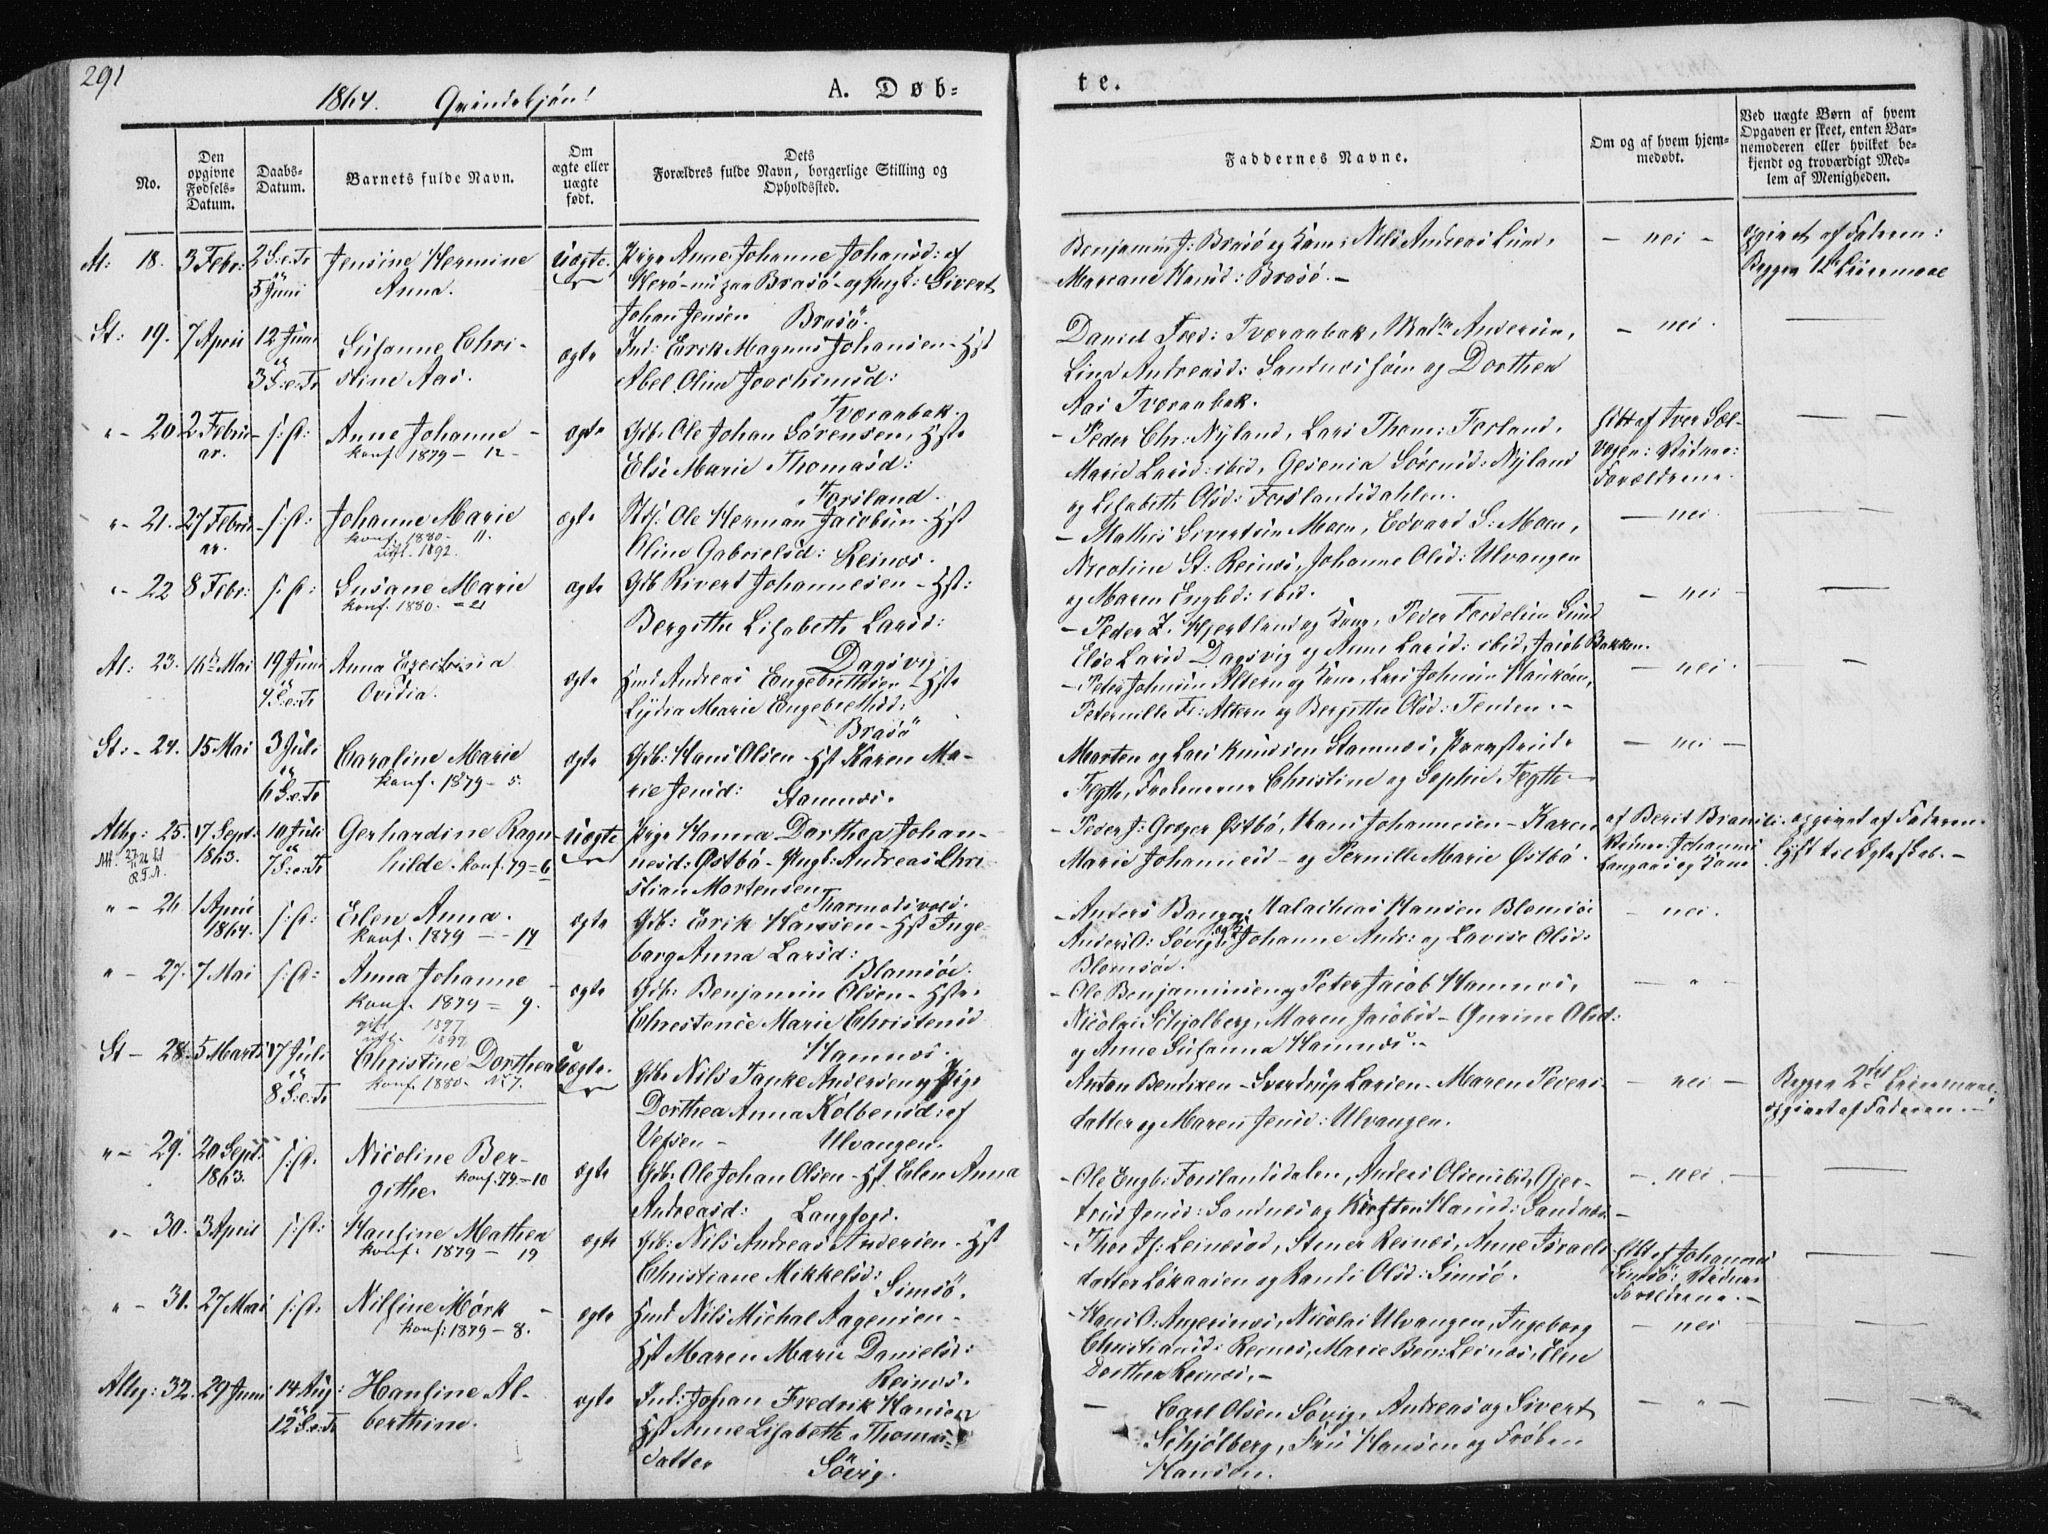 291
1864. Qvindekjøn!
A. Døb-
te.
No.
Den opgivne Fødsels-Datum.
Daabs-Datum.
Barnets fulde Navn.
Om ægte eller uægte født.
Dets Forældres fulde Navn, borgerlige Stilling og Opholdssted.
Faddernes Navne.
Om og af hvem hjem-
medøbt.
Ved uægte Børn af hvem
Opgaven er skeet, enten Bar-
nemoderen eller hvilket be-
kjendt og troværdigt Med-
lem af Menigheden.
Al: 18. 3 Febr: 2 S.e.Tr 5 Juni
Jensine Hermine
Anna.
Uægte.
Pige Anne Johanne Johansd: af
Herö - nu paa Brasö - og Ungk: Sivert
Johan Jensen Brasö.
Benjamin J: Brasö og Kone, Nils Andreas Lund,
Mareane Hansd: Brasö. -
- nei -
opgivet af Faderen:
Begges 1ste Leiermaal
St: 19. 7 April 12 Juni 3 S.e.Tr
Susanne Chri-
stine Aas.
ægte
Ind: Erik Magnus Johansen - Hst
Abel Oline Joachimsd:
Tværaabak.
Daniel Fred: Tværaabak, Madm Andersen,
Lina Andreasd: Sandnes söen og Dorthea
Aas Tværaabak.
- nei.
" - 20. 2 Febru-
ar. s: st:
Anne Johanne -
konf. 1879 - 12 -
ægte
Gdb: Ole Johan Sörensen, Hst
Else Marie Thomasd:
Forsland.
- Peder Chr: Nyland, Lars Thom: Forland,
Marie Larsd: ibid, Gesenia Sörensd: Nyland
og Elisabeth Olsd: Forslandsdahlen.
Födt af Iver Sæl-
vogen: Vidner:
Forældrene.
" - 21. 27 Febru-
ar. s: st:
Johanne Marie
konf. 1880 - 11.
utfl. 1892.
ægte
Ole Herman Jacobsen - Hst
Oline Gabrielsd: Reinæs.
- Mathis Sivertsen Moen, Edvard S: Moen,
Nicoline St. Reinæs, Johanne Olsd: Ulvangen
og Maren Engbd: ibid.
- nei -
" - 22 8 Febr: s: st:
Susane Marie
konf. 1880. - 21
ægte
Gdb Sivert Johannesen - Hst:
Bergitte Elisabeth Larsd:
Dagsvig
- Peder Z. Hjertland og Kone, Peder Lund
Else Larsd Dagsvig og Anne Larsd: ibid, Jacob Bakken.
- nei -
Al: 23. 16de Mai 19 Juni 4 S.e.Tr
Anna
Ovidia.
ægte
Hmd Andreas Engebrethsen - Hst
Lydia Marie Engebrethsd:
Brasö
- Peder Johnsen Altern og Kone, Lars Johnsen Hauköen,
Pernille Fr: Altern og Bergitte Olsd: Tenden. -
- nei -
St: - 24. 15 Mai 3 Juli 6 S.e.Tr
Caroline Marie
konf. 1879 - 5.
ægte
Gdb: Hans Olsen - Hst Karen Ma-
rie Jensd: Stamnes.
Morten og Lars Knudsen Stamnes,
Fogth, Frökenerne Christine og Sophie Fogth -
- nei -
Alhg: 25. 17 Sept: 1863. 10 Juli 7 S.e.Tr
Gerhardine Ragn
hilde. konf. 79 - 6
Uægte
Pige Hanna Dorthea Johan-
nesd: Østbö - Ungk: Andreas Chri-
stian Mortensen
Tharmodsvold.
- Peder J: Østbö, Hans Johannesen - Karen
Marie Johannesd - og Pernille Marie Østbö.
af Berit
Vidner: Johannes
Langaas og Kone
opgivet af Faderen
Løfte til Egteskab. -
" - 26 1 April 1864. s: st:
Elen Anna.
konf. 1879 - - 14
ægte
Gdb: Erik Hansen - Hst Inge-
borg Anna Larsd:
Blomsöe.
- Anders Malachias Hansen Blomsöe
Anders O: Søvig, Johanne Andr: og Lavise Olsd:
Blomsöe.
- nei.
" - 27. 7 Mai s: st:
Anna Johanne -
konf. 1879 = 9.
1897
ægte
Gdb. Benjamin Olsen - Hst.
Christence Marie Christensd
Hamnes.
- Ole Benjaminsen og Peter Jacob Hamnes,
Nicolai Schjølberg, Maren Jacobsd - Gurine Olsd:
og Anne Susanna Hamnes. -
- " -
St - 28. 5 Marts 17 Juli 8 S.e.Tr
Christine Dorthea
konf. 1880. No 7.
Uægte.
Gdb. Nils Tanke Andersen og Pige
Dorthea Anna Kolbensd: af
Vefsen - Ulvangen.
Anton Bendixen - Sverdrup Larsen - Maren Peders-
datter og Maren Jensd: Ulvangen.
- nei -
Begges 2det Leiermaal,
opgivet af Faderen. -
" - 29. 20 Sept: 1863. s: st.
Nicoline Ber-
githe. konf. 79. - 10
ægte
Gdb: Ole Johan Olsen - Hst. Elen Anna
Andreasd: Langfogs.
- Ole Engb: Forslandsdalen, Anders Olsen ibid, Gjer-
trud Jensd: Sandnes og Kirsten Hansd: Sandnes
- nei. -
" - 30. 3 April s: st:
Hansine Mathea
konf. 1879 - 19
ægte
Gdb: Nils Andreas Andersen - Hst
Christiane Mikkelsd:
Simsö.
- Thor Js: Leinesod, Stener Reines, Anne Israels-
datter Lökaasen og Randi Olsd: Simsö.
Födt af Johannes
Simsö: Vidner
Forældrene. -
" - 31. 27 Mai s: st.
Nilsine Mörk -
konf: 1879 - 8.
ægte
Hmd Nils Michal Aagensen -
Hst Maren Marie Danielsd:
Reines.
- Hans O: Angersnes, Nicolai Ulvangen, Ingeborg
Christiansd: Reines, Marie Ben: Leines, Elen
Dorthea Reines, -
- nei -
Alhg: 32. 29 Juni 14 Aug: 12 S.e.Tr
Hansine Al-
berthine.
ægte
Ind: Johan Fredrik Hansen
Hst Anne Lisabeth Thomas-
datter Søvig.
- Carl Olsen Søvig, Andreas og Sivert
Schjølberg, Fru Hansen og Frøken
Hansen.
- " -